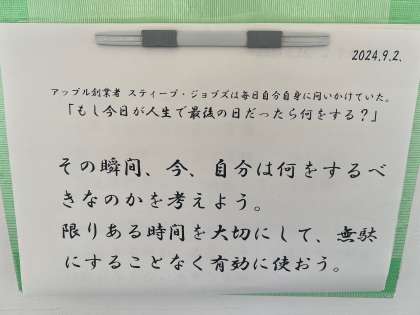 2024.9.2.
アップル創業者 スティーブ・ジョブズは毎日自分自身に問いかけていた。
「もし今日が人生で最後の日だったら何をする？」
その瞬間、今、自分は何をするべ
きなのかを考えよう。
限りある時間を大切にして、無駄
にすることなく有効に使おう。